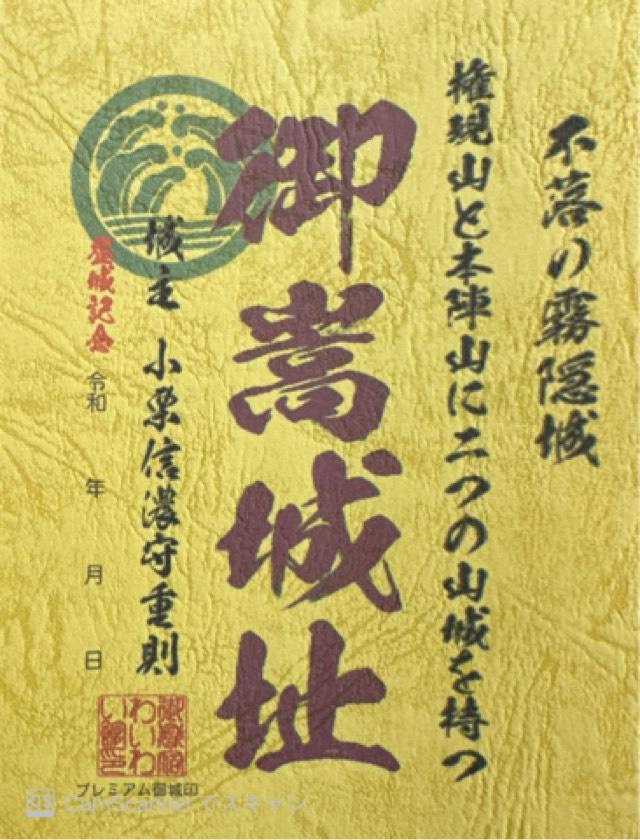 不落の霧隠城
権現山と本陣山に二つの山城を持つ
御嵩城址
城主 小栗信濃守重則
登城記念
令和 年 月 日
御嵩宿
わいわ
い館之印
プレミアム御城印
CS CamScanner でスキャン